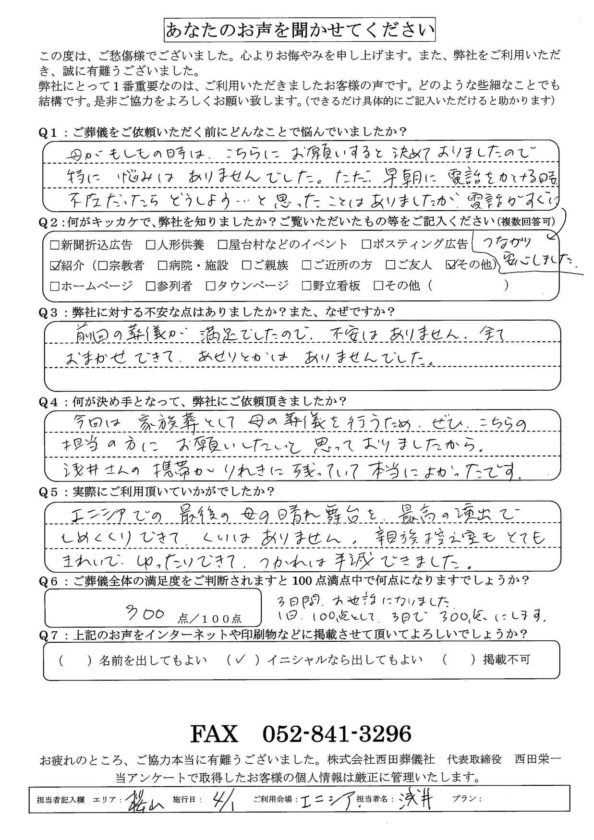 あなたのお声を聞かせてください
この度は、ご愁傷様でございました。心よりお悔やみを申し上げます。また、弊社をご利用いただ
き、誠に有難うございました。
弊社にとって1番重要なのは、ご利用いただきましたお客様の声です。どのような些細なことでも
結構です。是非ご協力をよろしくお願い致します。（できるだけ具体的にご記入いただけると助かります）
Q1：ご葬儀をご依頼いただく前にどんなことで悩んでいましたか？
母がもしもの時は、こちらに お願いすると 決めて おりましたので
特に 悩みは ありませんでした。ただ、早朝に 電話をかける時
不在だったら どうしよう…と 思った ことは ありましたが 電話がすぐに
つながり
安心しました。
Q2：何がキッカケで、弊社を知りましたか？ご覧いただいたもの等をご記入ください（複数回答可）
□新聞折込広告 □人形供養 □屋台村などのイベント □ポスティング広告
☑紹介（□宗教者 □病院・施設 □ご親族 □ご近所の方 □ご友人 ☑その他）
□ホームページ □参列者 □タウンページ □野立看板 □その他（ ）
Q3：弊社に対する不安な点はありましたか？また、なぜですか？
前回の葬儀が 満足でしたので、不安は ありません。全て
おまかせ できて、あせりとかは ありませんでした。
Q4：何が決め手となって、弊社にご依頼頂きましたか？
今回は 家族葬として 母の葬儀を 行うため、ぜひ、こちらの
担当の方に お願いしたいと 思って おりましたから。
浅井さんの 携帯が りれきに 残っていて 本当に よかったです。
Q5：実際にご利用頂いていかがでしたか？
エニシアでの 最後の 母の 晴れ舞台を、最高の 演出で
しめくくりできて、くいは ありません。親族控え室も とても
きれいで、ゆったりできて、つかれは 半減 できました。
Q6：ご葬儀全体の満足度をご判断されますと100点満点中で何点になりますでしょうか？
300 点／100点
3日間、お世話になりました
1日、100点として、3日で 300点 にします。
Q7：上記のお声をインターネットや印刷物などに掲載させて頂いてよろしいでしょうか？
（ ）名前を出してもよい （✓）イニシャルなら出してもよい （ ）掲載不可
FAX 052-841-3296
お疲れのところ、ご協力本当に有難うございました。株式会社西田葬儀社 代表取締役 西田栄一
当アンケートで取得したお客様の個人情報は厳正に管理いたします。
担当者記入欄 エリア：桜山 施行日：4/1 ご利用会場：エニシア 担当者名：浅井 プラン：